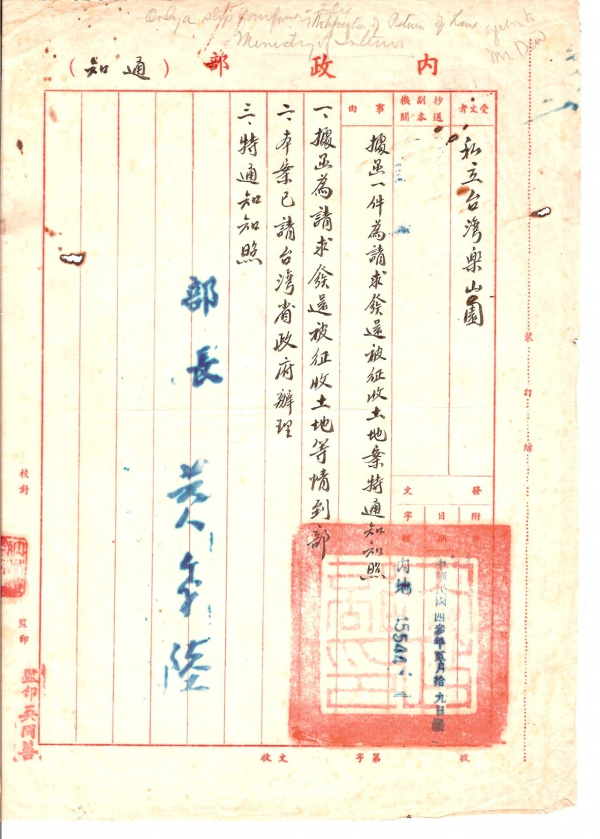 Ministry of Interior
內政部（通知）
受文者
私立台灣樂山園
抄送副本機關
事由
據函一件為請求發還被征收土地案特通知知照
一、據函為請求發還被征收土地等情到部
二、本案已請台灣省政府辦理
三、特通知知照
部長
發文
附
日
字號
中華民國四參年
月拾九日
內地
校對
監印
監印吳同善
裝訂線
收文 字第 號